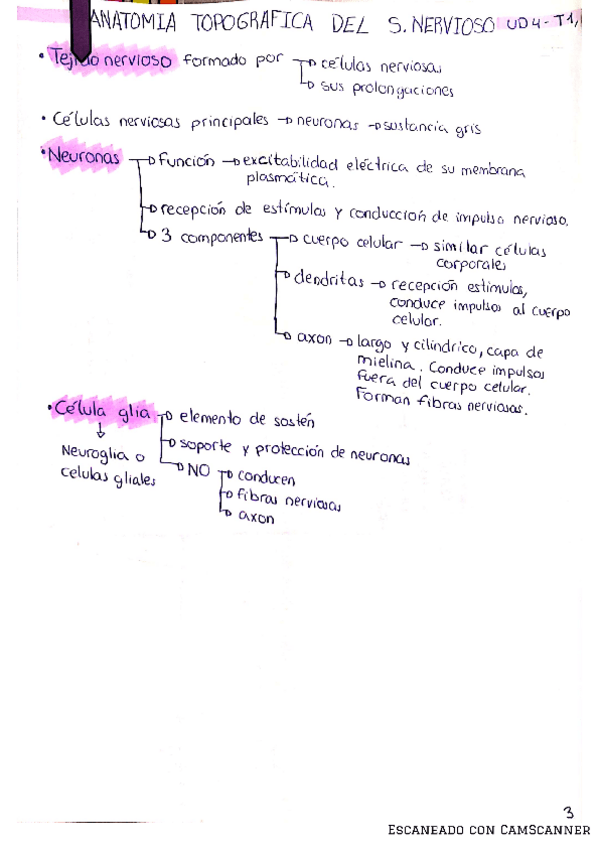 ANATOMIA TOPOGRAFICA DEL S. NERVIOSO UD4-T1,
• Tejido nervioso formado por → células nerviosas
→ sus prolongaciones
• Células nerviosas principales → neuronas → sustancia gris
• Neuronas → función → excitabilidad eléctrica de su membrana
plasmática.
→ recepción de estímulos y conducción de impulso nervioso.
→ 3 componentes → cuerpo celular → similar células
corporales
→ dendritas → recepción estímulos,
conduce impulsos al cuerpo
celular.
→ axon → largo y cilíndrico, capa de
mielina. Conduce impulsos
fuera del cuerpo celular.
Forman fibras nerviosas.
• Célula glia → elemento de sostén
↓
Neuroglia o
celulas gliales
→ soporte y protección de neuronas
→ NO → conducen
→ fibras nerviosas
→ axon
3
ESCANEADO CON CAMSCANNER